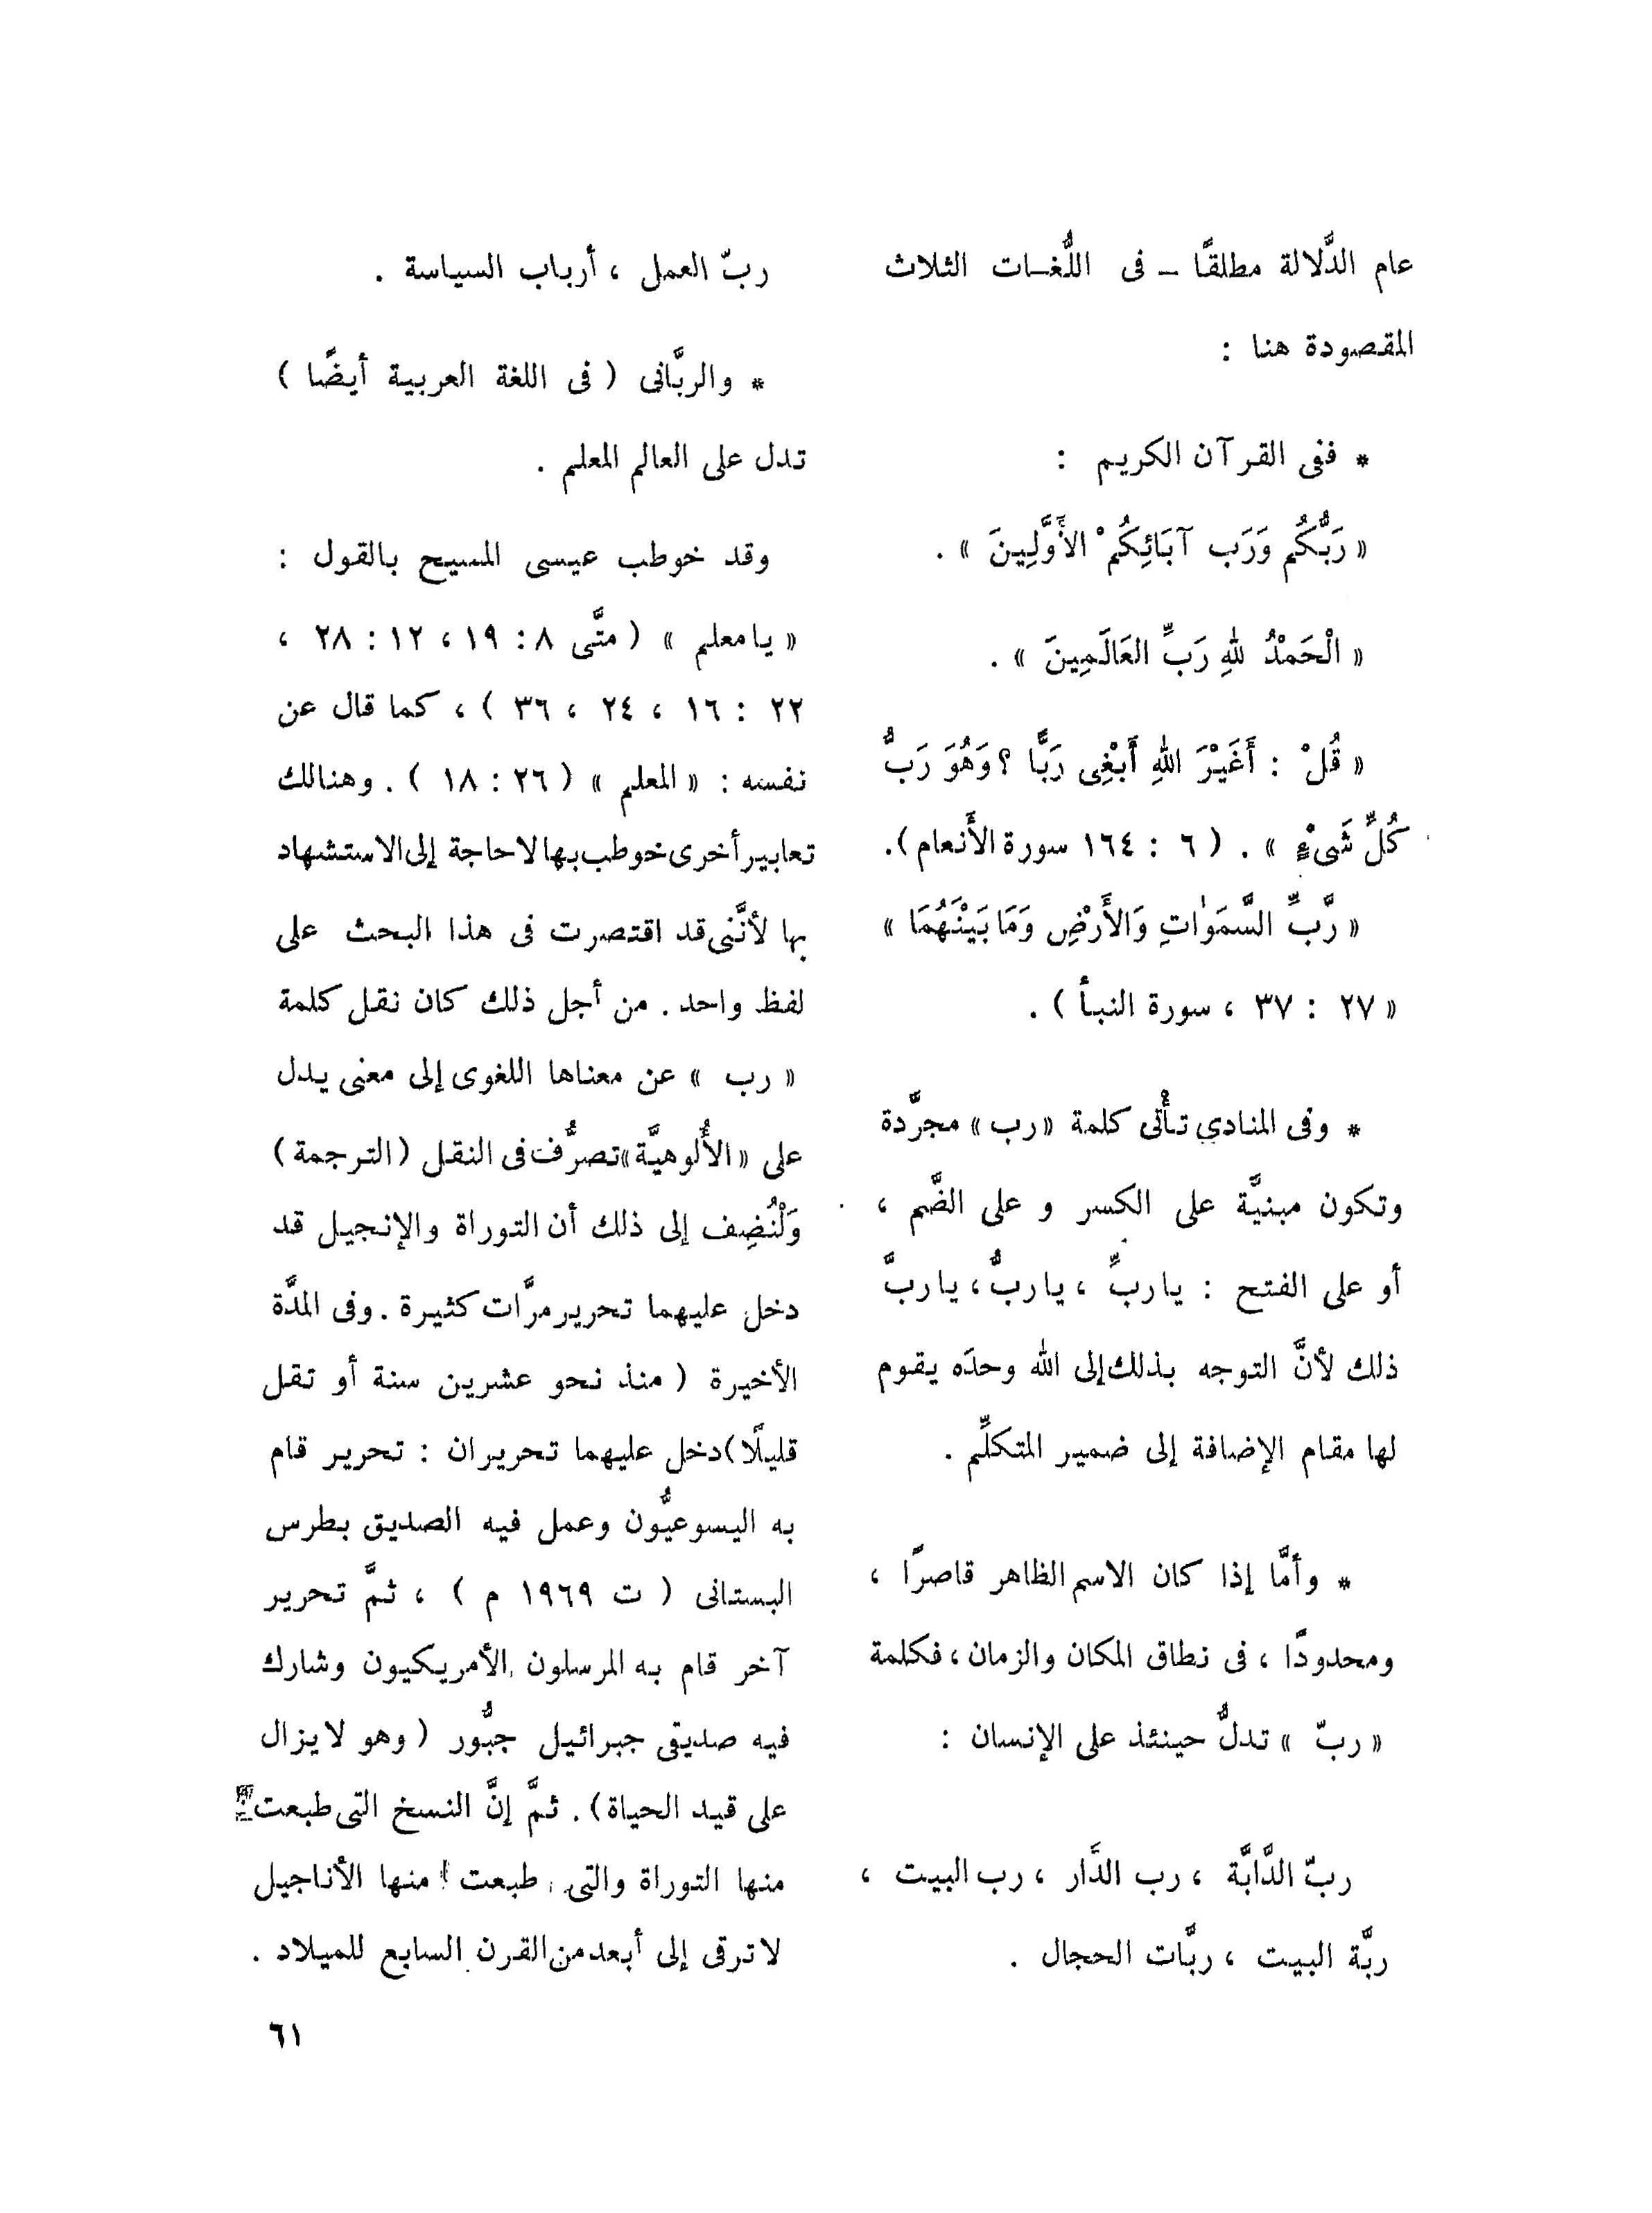 عام الدَّلالة مطلقًا – فى اللُّغات الثلاث
المقصودة هنا :
* ففى القرآن الكريم :
« رَبُّكُم وَرَب آبَائِكُمْ الأَوَّلِينَ » .
« الْحَمْدُ للهِ رَبِّ العَالَمِينَ » .
« قُلْ : أَغَيْرَ اللهِ أَبْغِى رَبًّا ؟ وَهُوَ رَبُّ
كُلِّ شَىْءٍ » . ( ٦ : ١٦٤ سورة الأَنعام ) .
« رَّبِّ السَّمَوٰاتِ وَالأَرْضِ وَمَا بَيْنَهُمَا »
« ٢٧ : ٣٧ ، سورة النبأ ) .
* وفى المنادي تأْتى كلمة « رب » مجرَّدة
وتكون مبنيَّة على الكسر و على الضَّم ،
أو على الفتح : ياربِّ ، ياربُّ ، ياربَّ
ذلك لأنَّ التوجه بذلك إلى الله وحدَه يقوم
لها مقام الإضافة إلى ضمير المتكلِّم .
* وأمَّا إذا كان الاسم الظاهر قاصرًا ،
ومحدودًا ، فى نطاق المكان والزمان ، فكلمة
« ربّ » تدلُّ حينئذ على الإنسان :
ربّ الدَّابَّة ، رب الدَّار ، رب البيت ،
ربَّة البيت ، ربَّات الحجال .
ربّ العمل ، أرباب السياسة .
* والربَّانى ( فى اللغة العربية أيضًا )
تدل على العالم المعلم .
وقد خوطب عيسى المسيح بالقول :
« يا معلم » ( متَّى ٨ : ١٩ ، ١٢ : ٢٨ ،
٢٢ : ١٦ ، ٢٤ ، ٣٦ ) ، كما قال عن
نفسه : « المعلم » ( ٢٦ : ١٨ ) . وهنالك
تعابير أخرى خوطب بها لاحاجة إلى الاستشهاد
بها لأنَّنى قد اقتصرت فى هذا البحث على
لفظ واحد . من أجل ذلك كان نقل كلمة
« رب » عن معناها اللغوى إلى معنى يدل
على « الأُلوهيَّة » تصرُّف فى النقل ( الترجمة )
وَلْنُضِف إلى ذلك أن التوراة والإنجيل قد
دخل عليهما تحرير مرَّات كثيرة . وفى المدَّة
الأخيرة ( منذ نحو عشرين سنة أو تقل
قليلًا ) دخل عليهما تحريران : تحرير قام
به اليسوعيُّون وعمل فيه الصديق بطرس
البستانى ( ت ١٩٦٩ م ) ، ثمَّ تحرير
آخر قام به المرسلون الأمريكيون وشارك
فيه صديقى جبرائيل جبُّور ( وهو لايزال
على قيد الحياة ) . ثمَّ إنَّ النسخ التى طبعت
منها التوراة والتى طبعت منها الأناجيل
لاترقى إلى أبعد من القرن السابع للميلاد .
٦١